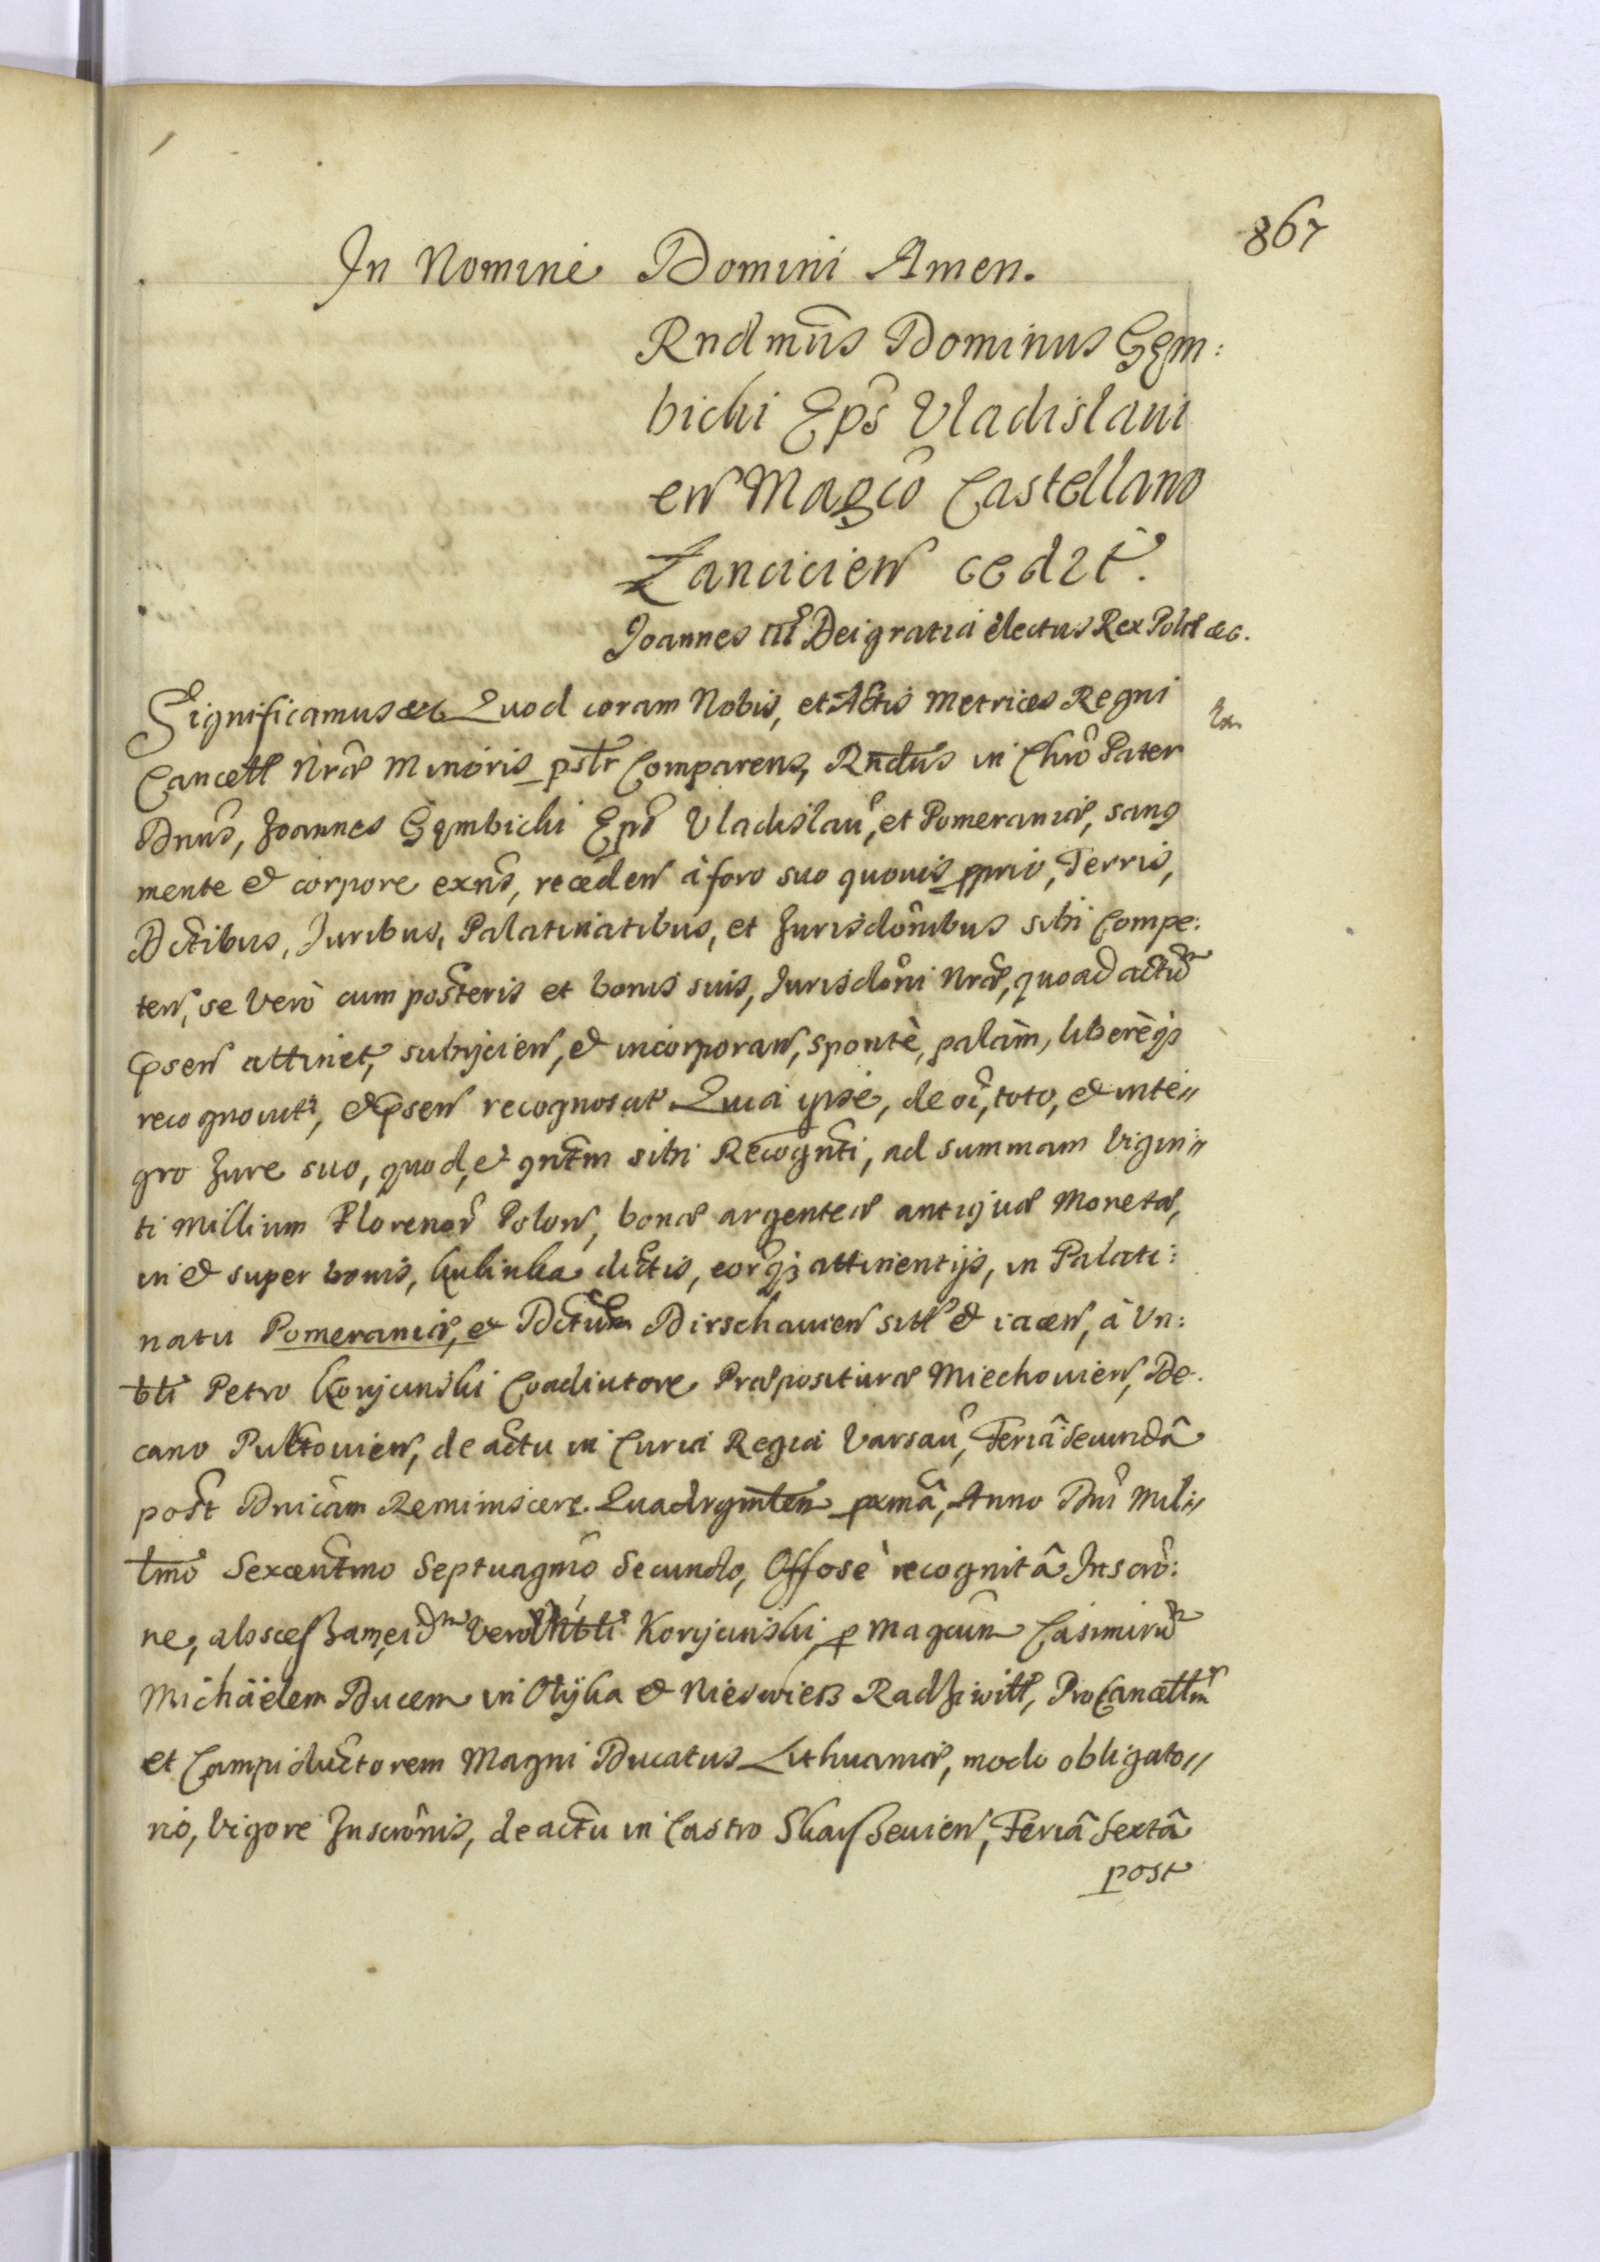 867
In Nomine Domini Amen.
Rndmus Dominus Gęm:
bicki Eps Vladislaui
en Magco Castellano
Lancicien cedit.
Joannes III Dei gratia electus Rex Pol &c.
Significamus &c Quod coram Nobis, et Actis Metrices Regni
Cancell Nræ Minoris pstr Comparens, Rndus in Chro Pater
Dnus, Joannes Gęmbicki Eps Vladislau, et Pomeraniæ, sang
mente et corpore exns, receden à foro suo quouis pprio, Terris,
Dctibus, Juribus, Palatinatibus, et Jurisdonibus sibi Compe:
ten, se Verò cum posteris et bonis suis, Jurisdoni Nræ, quo ad actum
psen attinet, subijcien, et incorporan, spontè, palàm, liberèq
recognouit, et psen recognoscit Quia ipse, de oi, toto, et inte//
gro Jure suo, quod, et qntm sibi Recognti, ad summam Vigin//
ti Millium Florenor Polon, bonæ argenteæ antiquæ Monetæ,
in et super bonis, Kulinka dictis, eorq attinentijs, in Palati:
natu Pomeraniæ, et Dctu Dirschauien sitt et iacen, à Vn:
bli Petro Korycinski Coadiutore Præposituræ Miechouien, De.
cano Pultouien, de actu in Curia Regia Varsau, Feriâ Secundâ
post Dnicam Reminiscere Quadrgmlen pxmâ, Anno Dni Mill//
lmo Sexcentmo Septuagmo Secundo, Offose recognitâ Inscro:
ne, eid Vero Korycinski, p Magcum Casimirum
Michaëlem Ducem in Olÿka et Nieswiesz Radziwill, ProCancellm
et Campiductorem Magni Ducatus Lithuaniæ, modo obligato//
rio, Vigore Inscronis, de actu in Castro Skarszeuien, Feriâ Sextâ
post